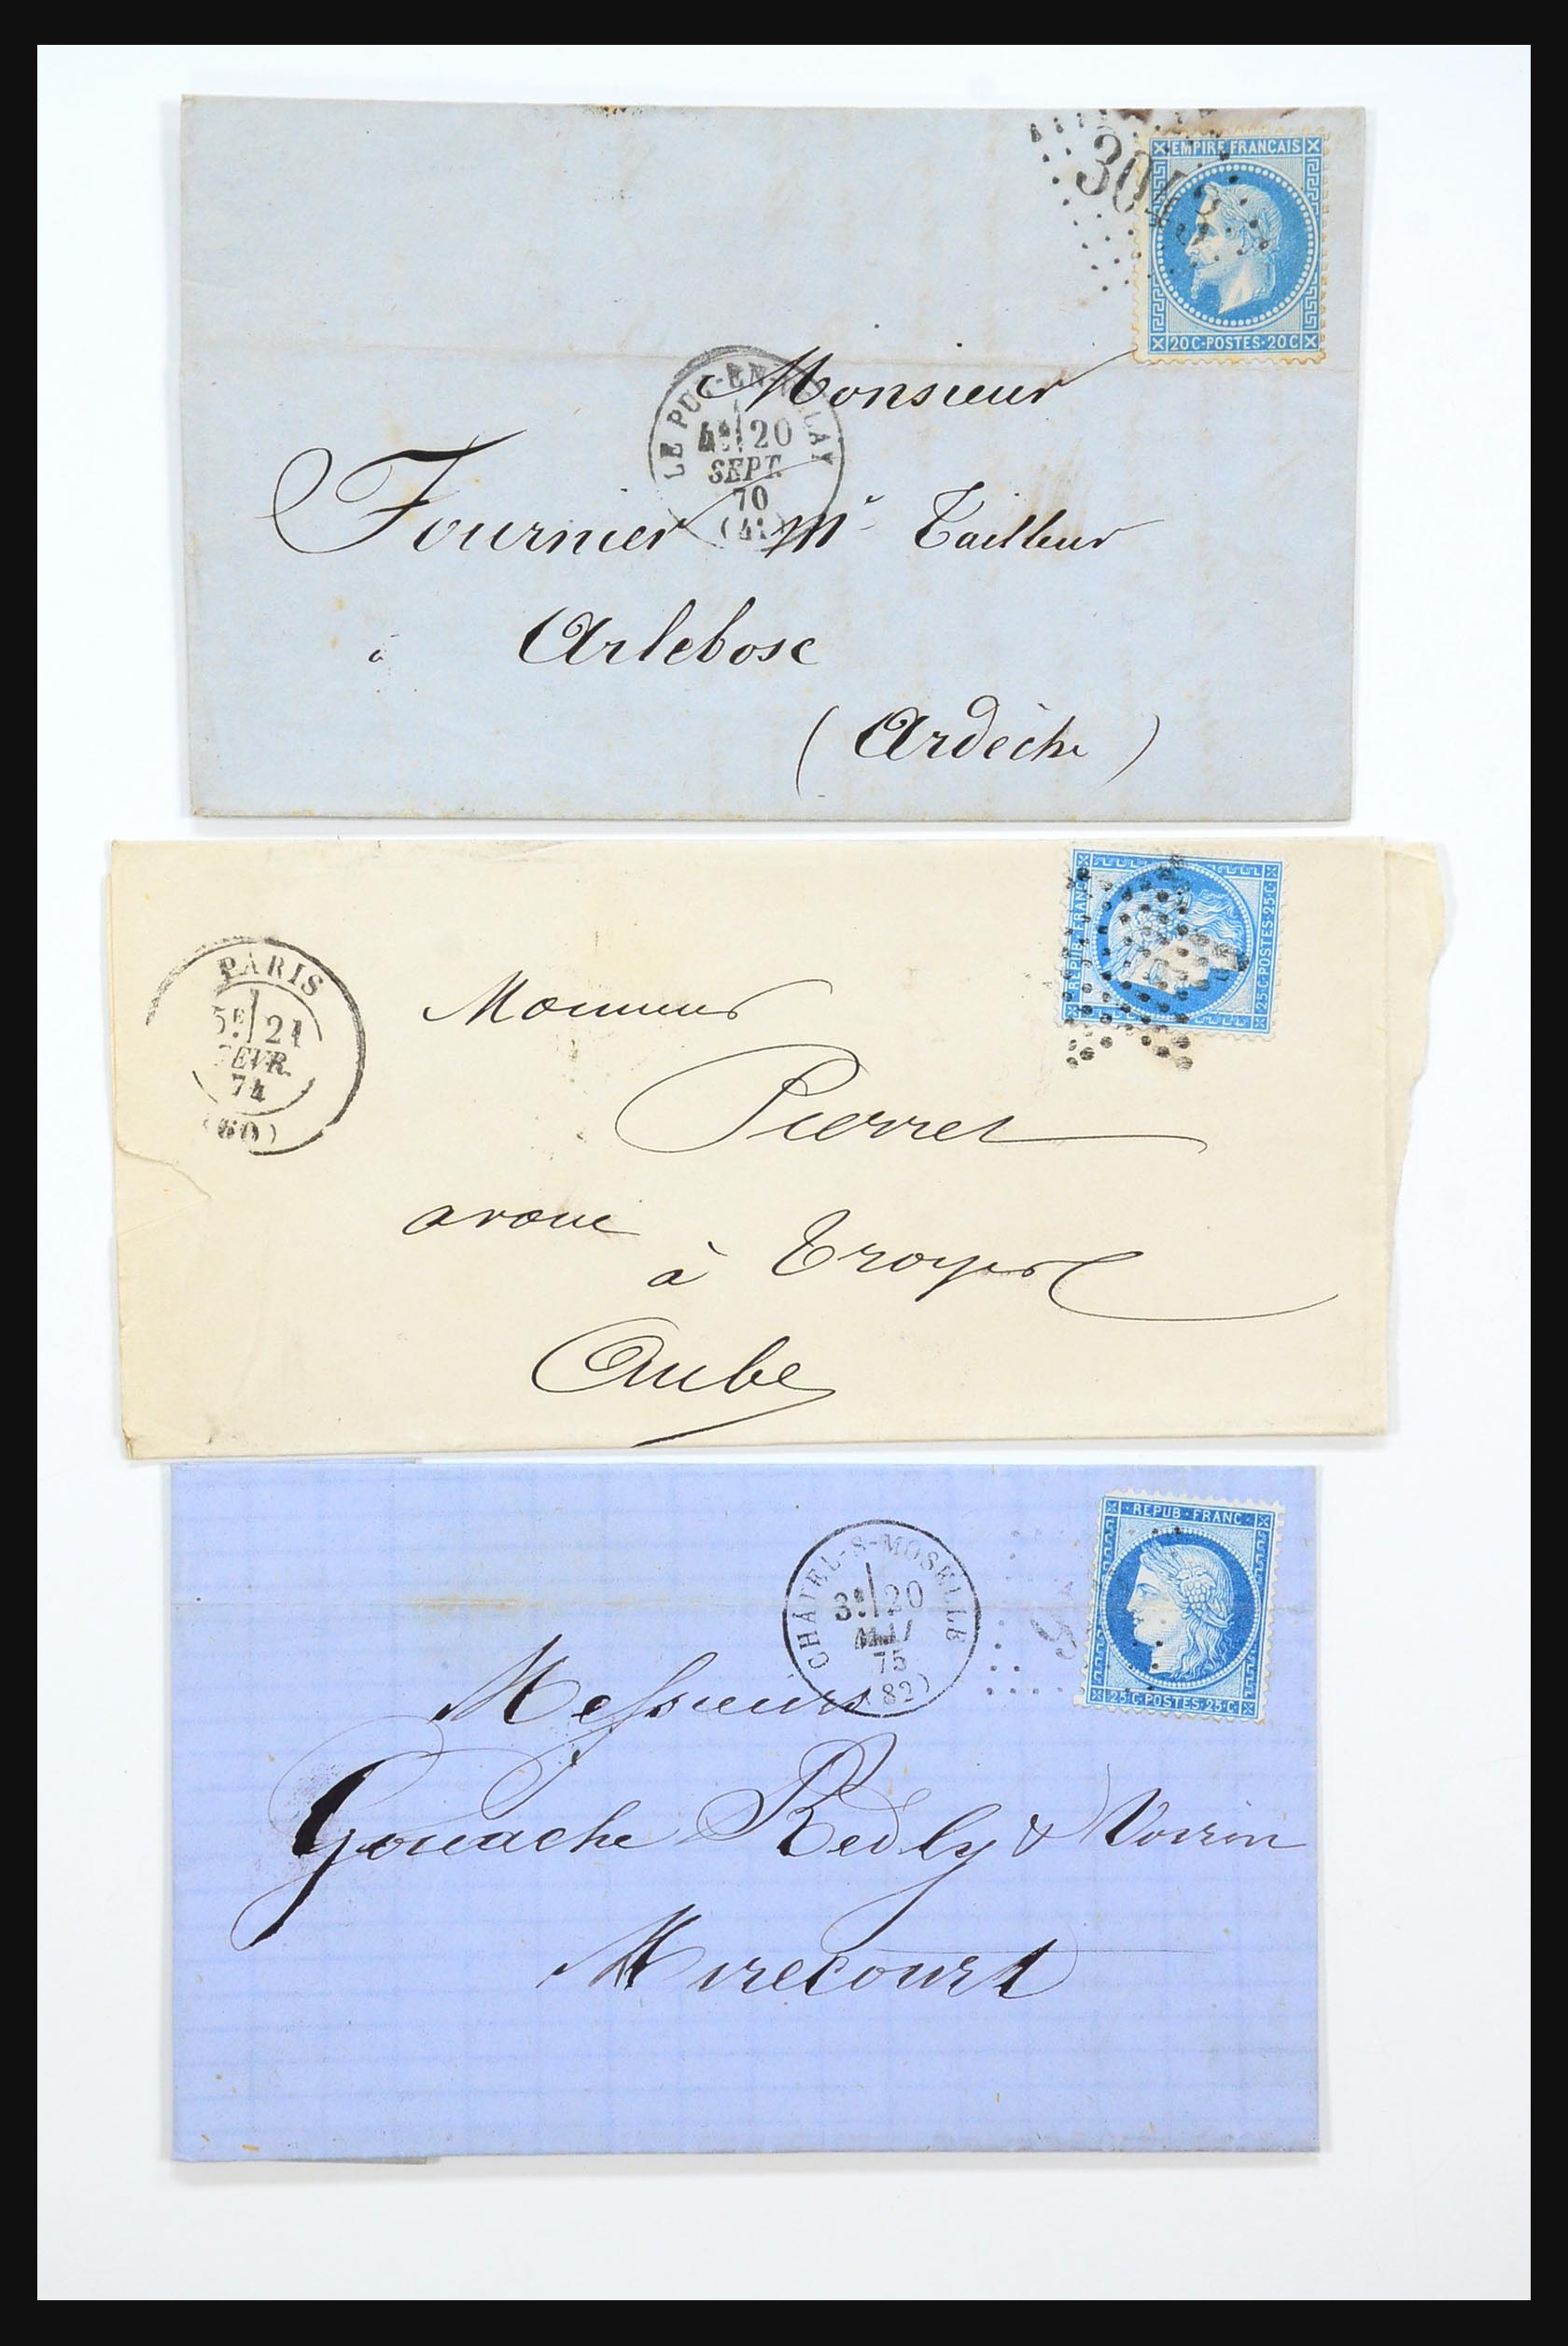 3043
EMPIRE FRANCAIS
20 C·POSTES·20 C
LE PUY-EN-VELAY
4E 20
SEPT.
70
(41)
Monsieur
Fournier Md Tailleur
à Arlebosc
(Ardèche)
REPUB·FRANC
25·C·POSTES·25·C
PARIS
5E 21
FEVR.
74
(60)
Monsieur
Pierret
avoué
à Troyes
Aube
REPUB·FRANC
25·C·POSTES·25·C
CHÂTEL-S-MOSELLE
3E 20
MAI
75
(82)
Messieurs
Gouache Redly & Voirin
Mirecourt